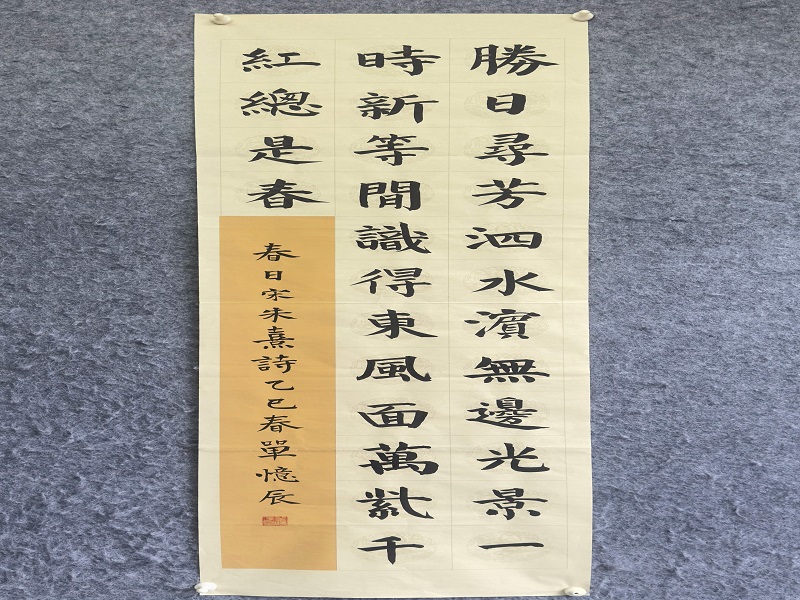 勝日尋芳泗水濱無邊光景一
時新等間識得東風面萬紫千
紅總是春
春日宋朱熹詩乙巳春單憶辰